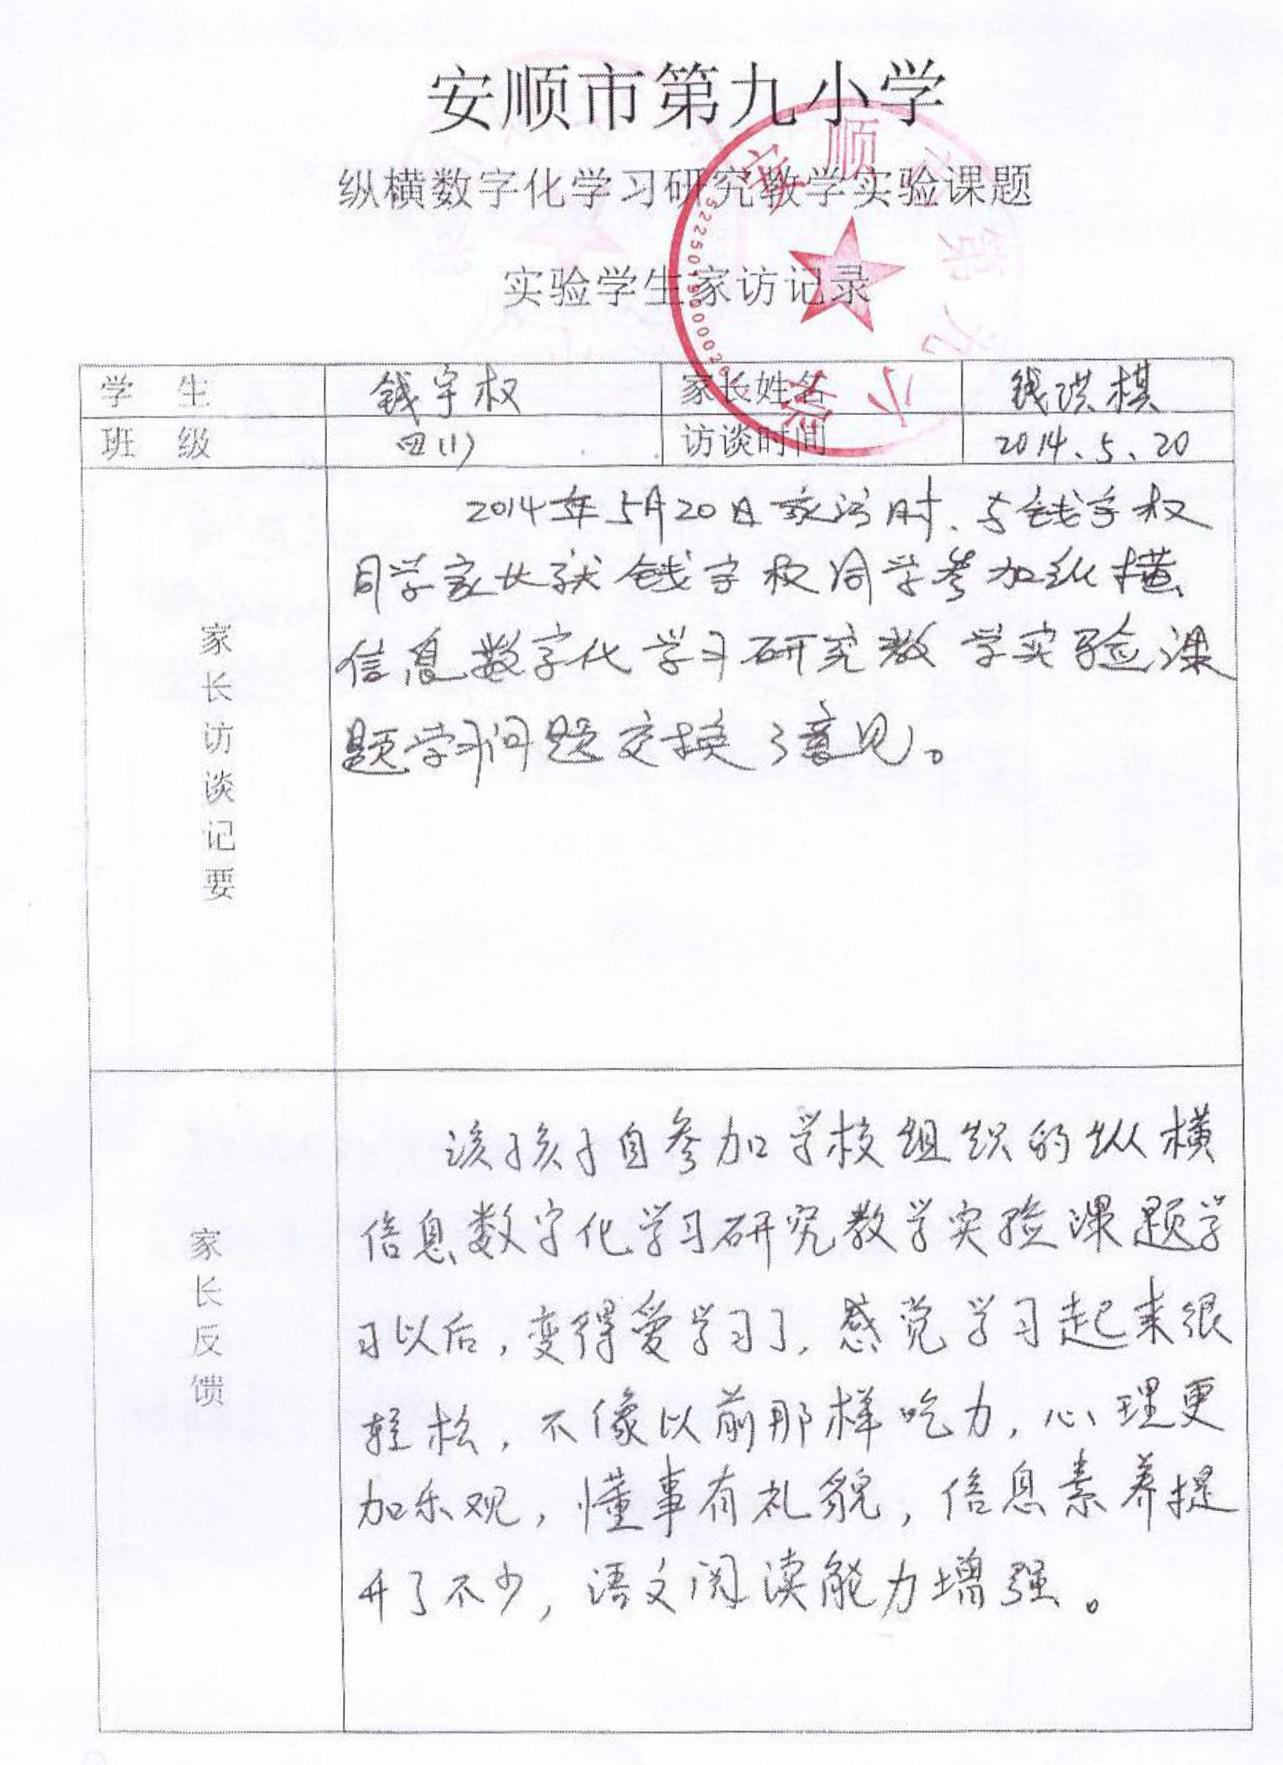 安顺市第九小学
纵横数字化学习研究教学实验课题
实验学生家访记录
学 生 钱宇权 家长姓名 钱洪棋
班 级 四(1) 访谈时间 2014.5.20
家长访谈记要
2014年5月20日家访时、与钱宇权
同学家长就钱宇权同学参加纵横
信息数字化学习研究教学实验课
题学习问题交换了意见。
家长反馈
该孩子自参加学校组织的纵横
信息数字化学习研究教学实验课题学
习以后,变得爱学习了,感觉学习起来很
轻松,不像以前那样吃力,心理更
加乐观,懂事有礼貌,信息素养提
升了不少,语文阅读能力增强。
安顺市第九小学